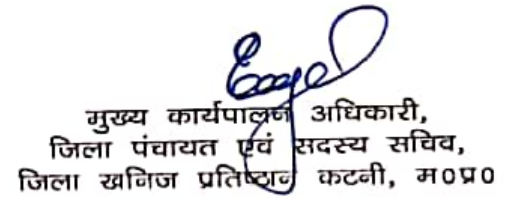 मुख्य कार्यपालन अधिकारी,
जिला पंचायत एवं सदस्य सचिव,
जिला खनिज प्रतिष्ठान कटनी, म०प्र०